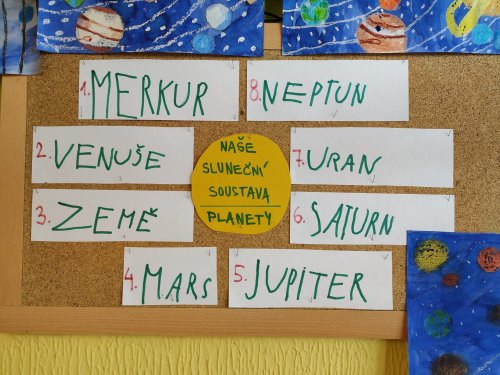 1. MERKUR
2. VENUŠE
3. ZEMĚ
4. MARS
5. JUPITER
6. SATURN
7. URAN
8. NEPTUN
NAŠE
SLUNEČNÍ
SOUSTAVA
PLANETY